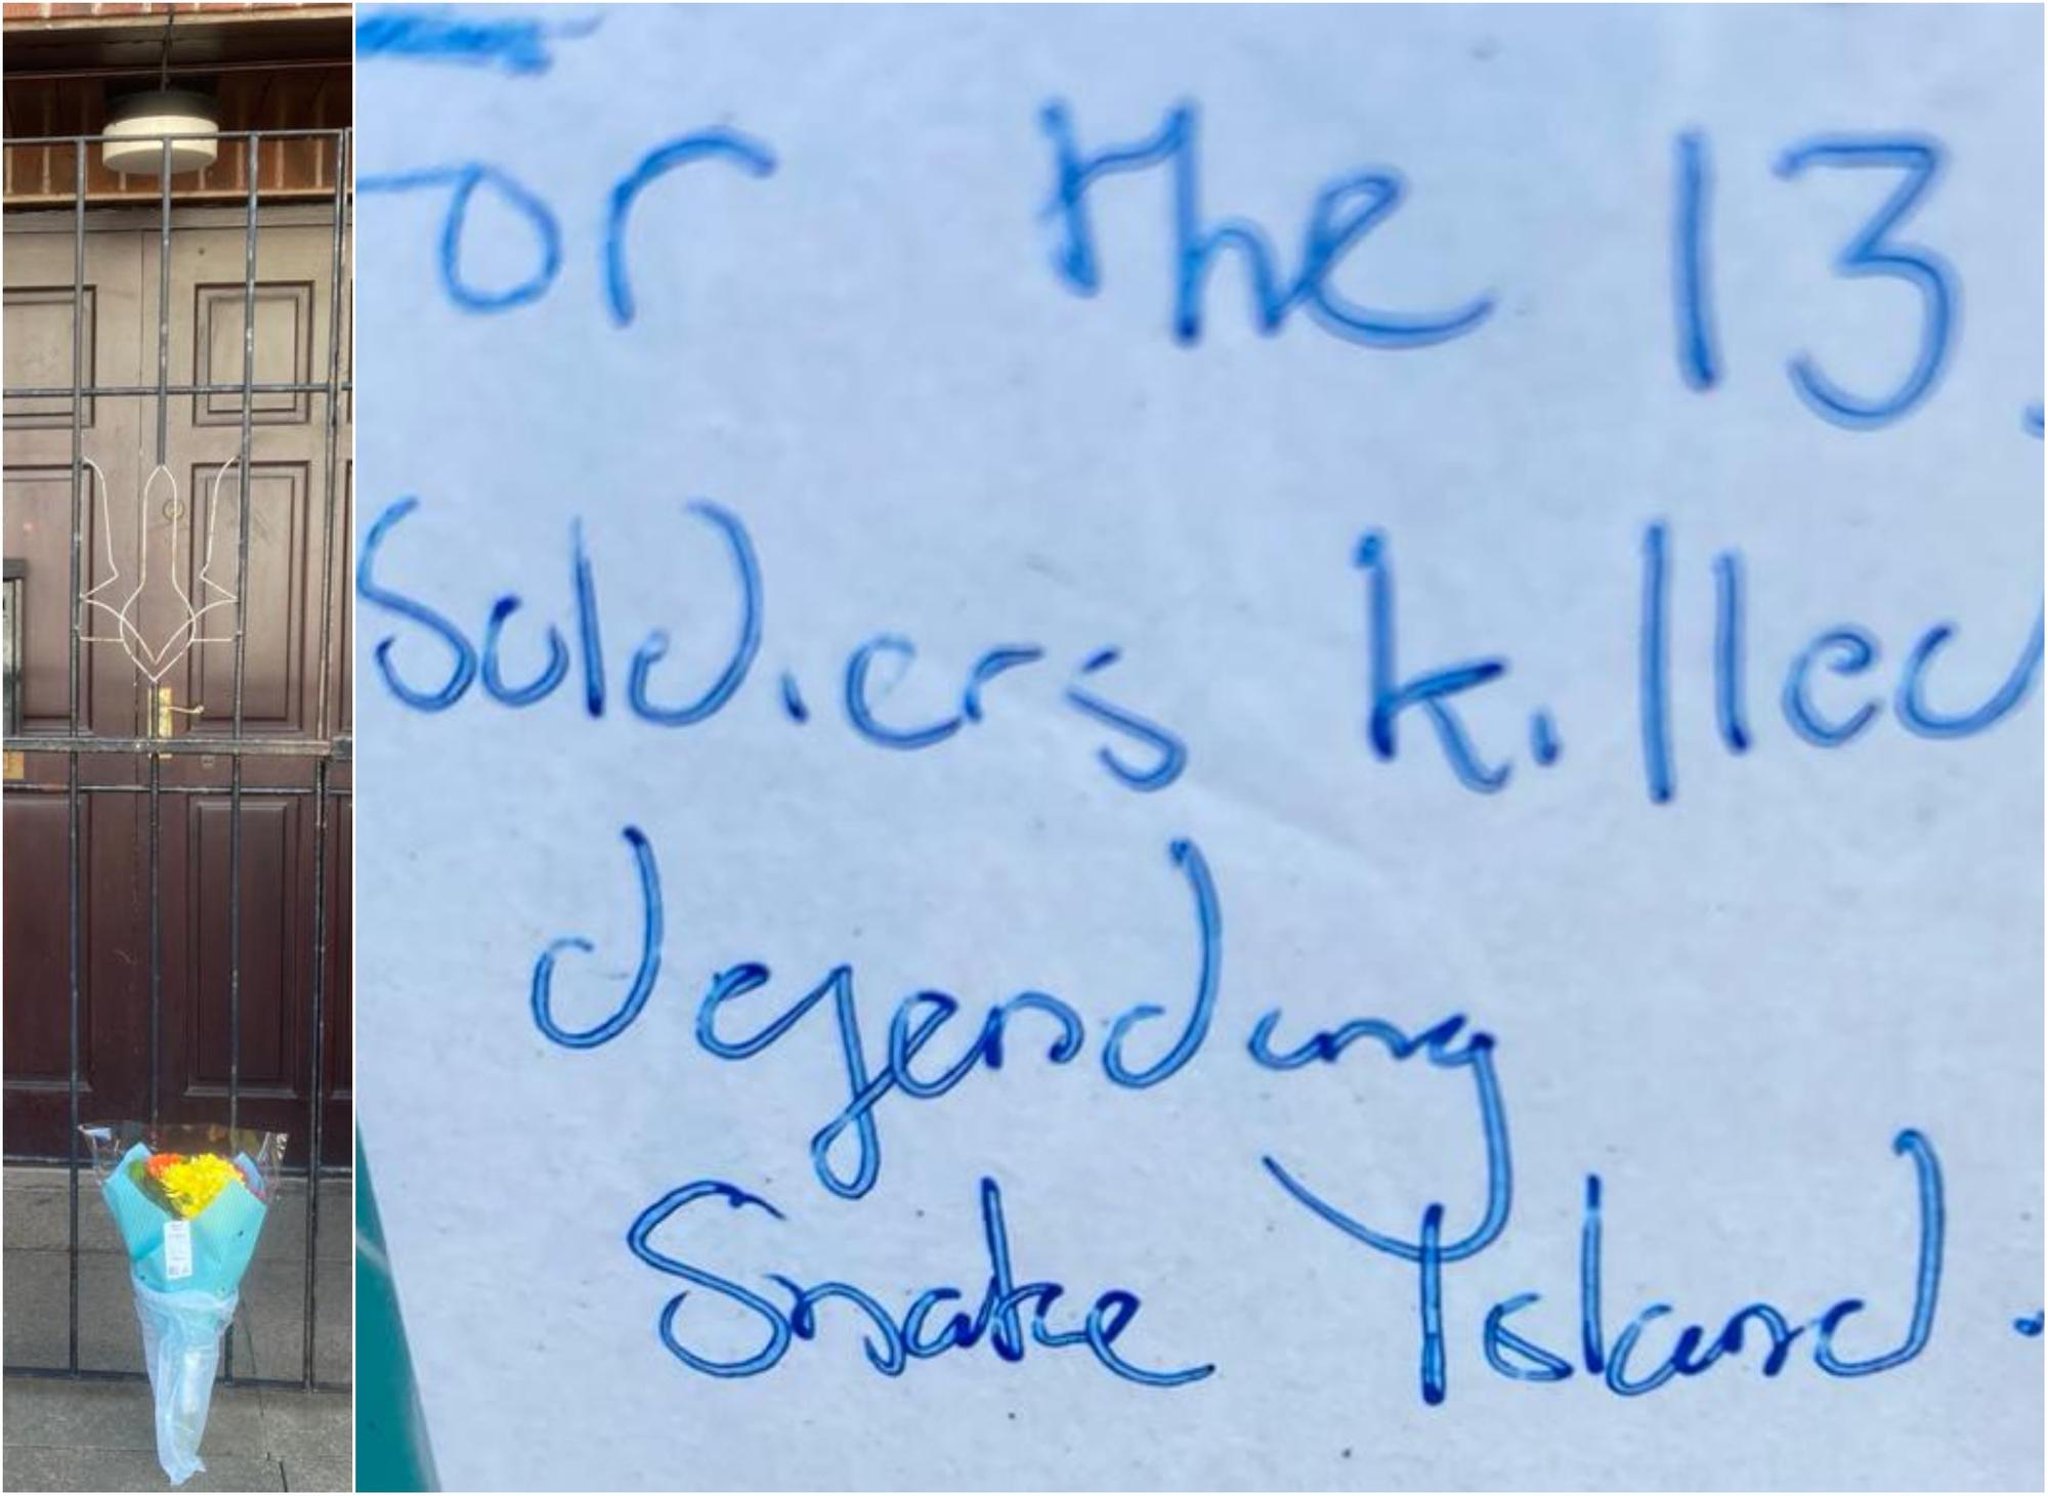 For the 13
Soldiers killed
defending
Snake Island.